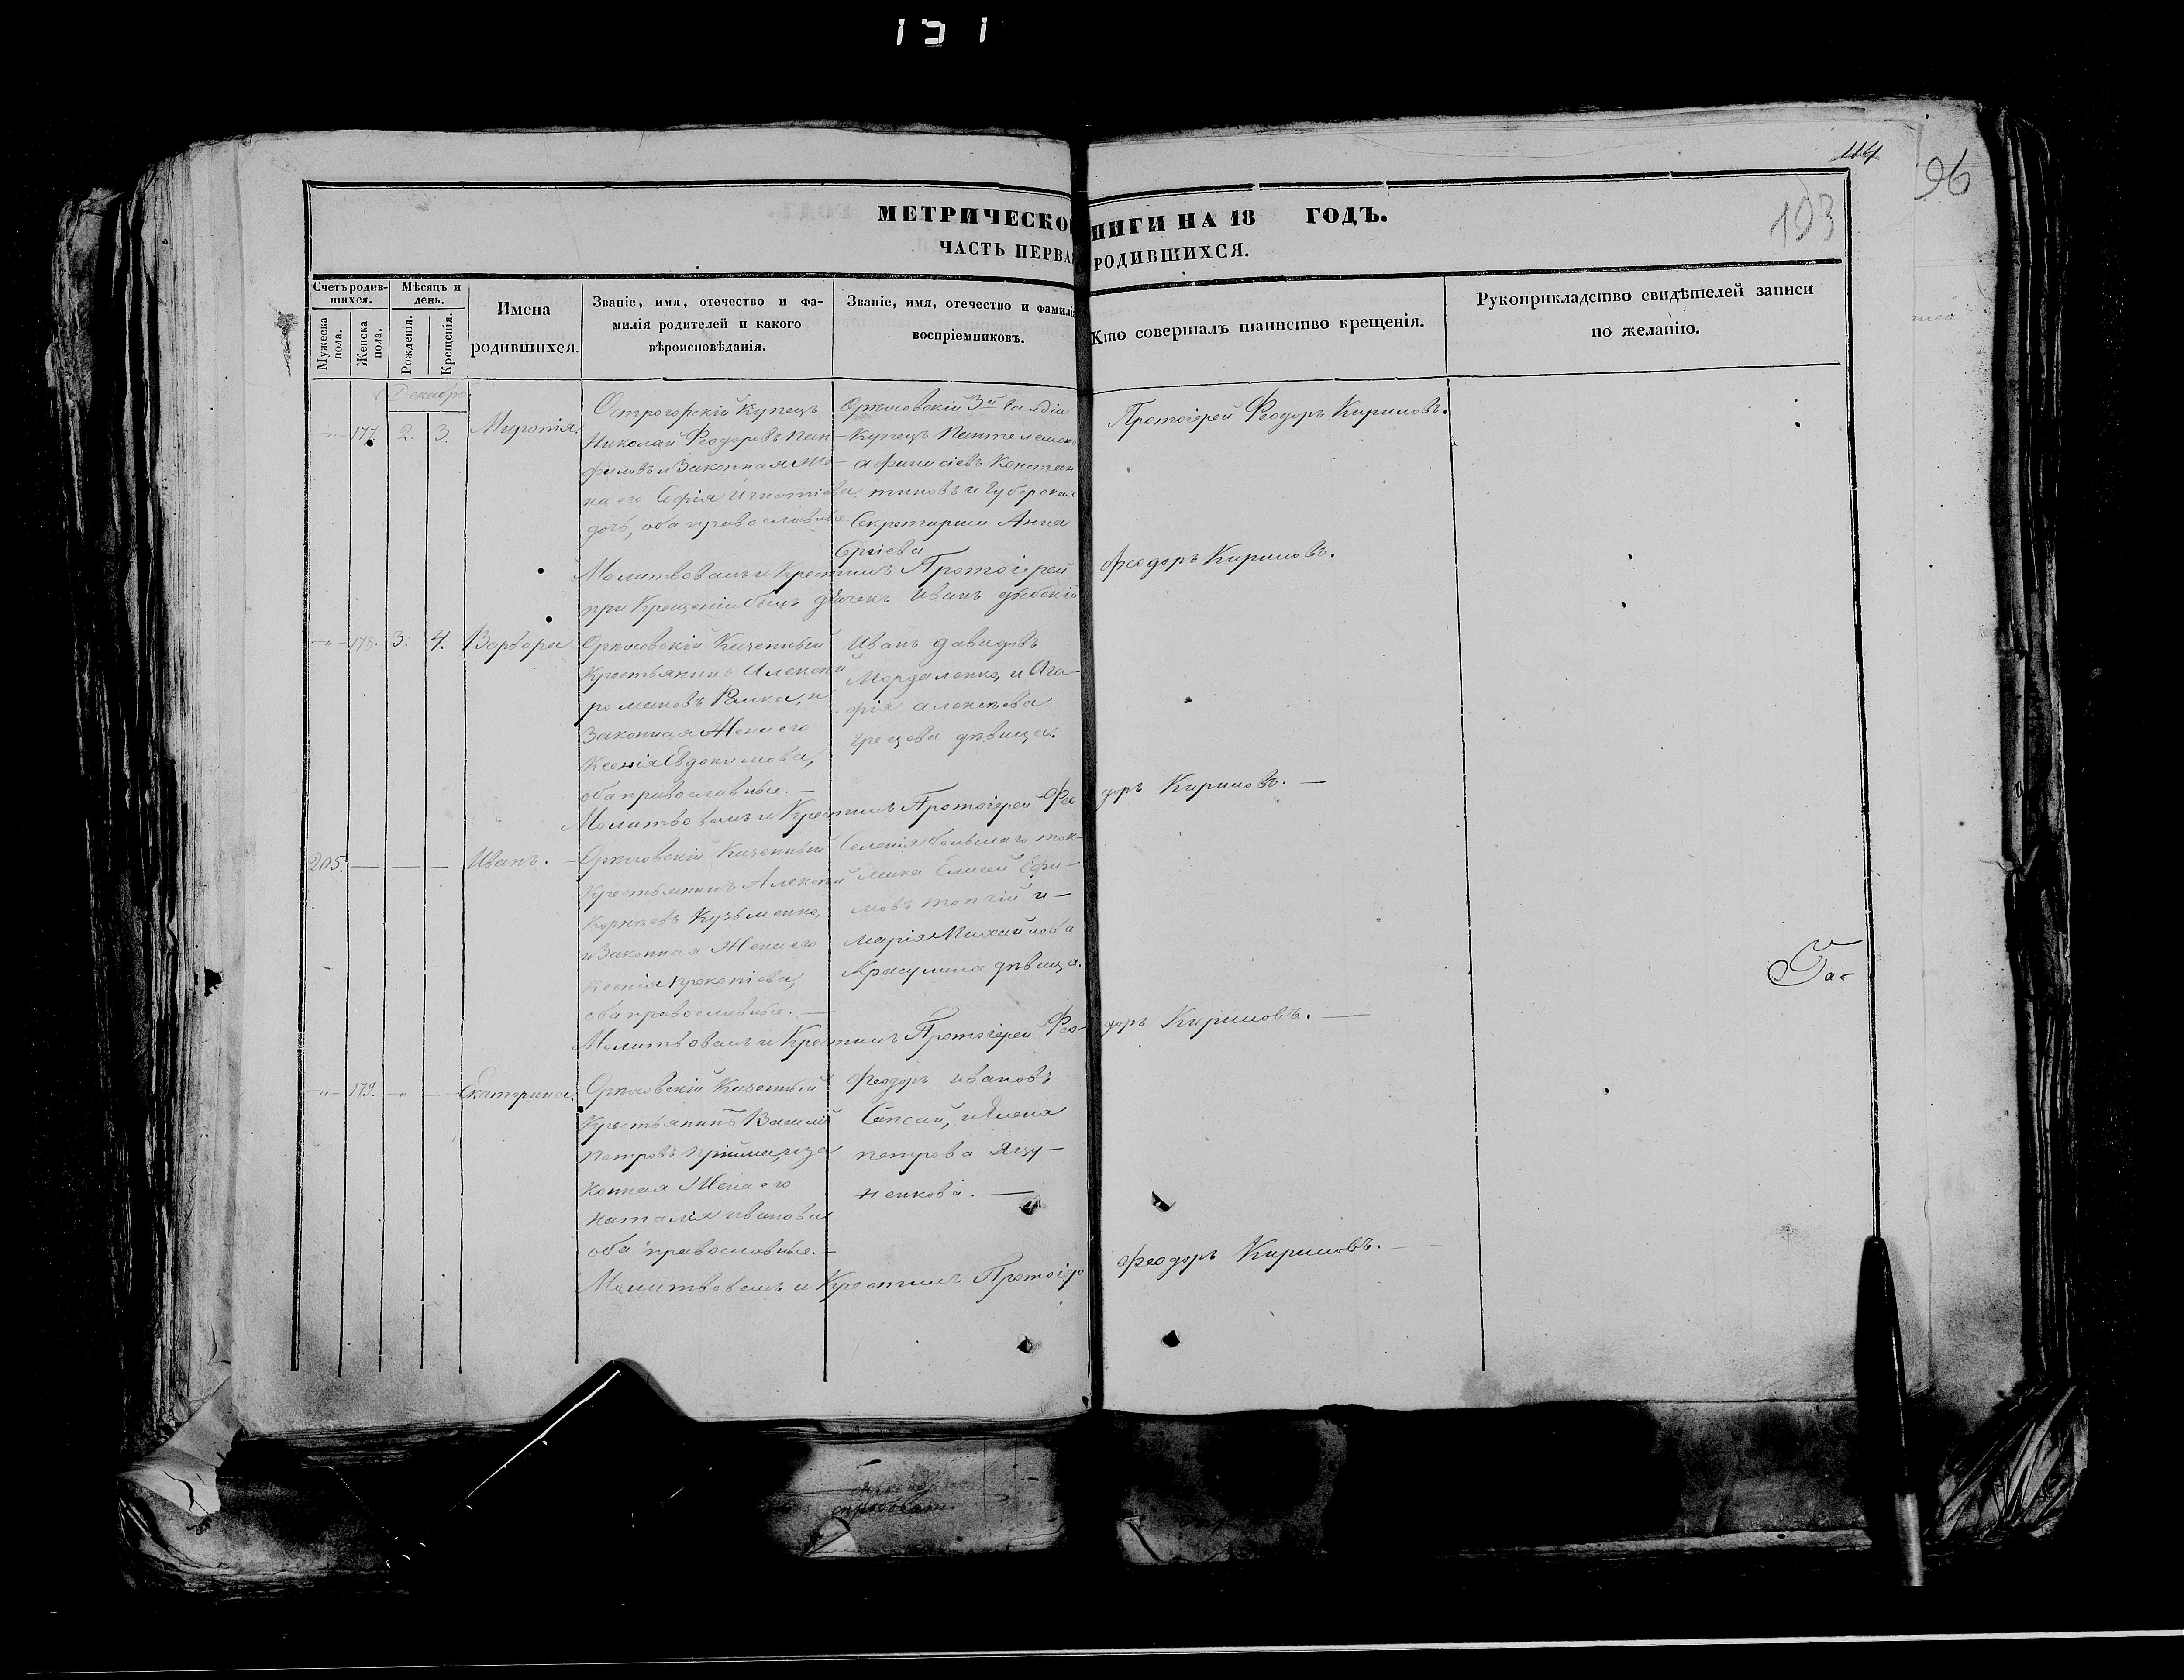 151
114
96
103
МЕТРИЧЕСКО НИГИ НА 18 ГОДЪ.
ЧАСТЬ ПЕРВА РОДИВШИХСЯ.
Счетъ родив-
шихся.
Мужеска пола.
Женска пола.
Мѣсяцъ и
день.
Рожденія.
Крещенія.
Имена
родившихся.
Званіе, имя, отечество и фа-
милія родителей и какого
вѣроисповѣданія.
Званіе, имя, отечество и фамилі
воспріемниковъ.
Кто совершалъ таинство крещенія.
Рукоприкладство свидѣтелей записи
по желанію.
Декабрь
177. 2. 3.
Миропія.
Острогорскій Купецъ
Николай Феодоровъ Пан-
филовъ и Законная Же-
на его Софія Игнатіева
оба православные
Орѣховскій 3й Гильдіи
Купецъ Пантелеимонъ
Афинасіевъ Констан
тиновъ и Губернская
Секретарша Анна
Сергіева
Протоіерей Феодоръ Кириловъ.
Молитвовалъ и Крестилъ Протоіерей Феодоръ Кириловъ.
при Крещеніи былъ дьячекъ Иванъ
178. 3. 4.
Варвара
Орѣховскій Казенный
Крестьянинъ Алексѣй
Романовъ и
Законная Жена его
Ксенія Евдокимова,
оба православные. —
Иванъ Давидовъ
и Ага-
фія Алексѣева
Грецова дѣвица.
Молитвовалъ и Крестилъ Протоіерей Фео доръ Кириловъ. —
205. — — —
Иванъ. —
Орѣховскій Казенный
Крестьянинъ Алексѣй
Корнѣевъ Кузьменко,
и Законная Жена его
Ксенія Прокопіева,
оба православные. —
Селенія большаго ток-
мака Елисей Ефи-
мовъ Топчій и —
Марія Михайлова
Красулина дѣвица.
Молитвовалъ и Крестилъ Протоіерей Фео- доръ Кириловъ. —
Га-
179. —
Екатерина.
Орѣховскій Казенный
Крестьянинъ Василій
Петровъ Прійма, и за
конная Жена его
Наталія Иванова
оба православные. —
Феодоръ Ивановъ
и Елена
Петрова Яцу-
ненкова. —
Молитвовалъ и Крестилъ Феодоръ Кириловъ. —